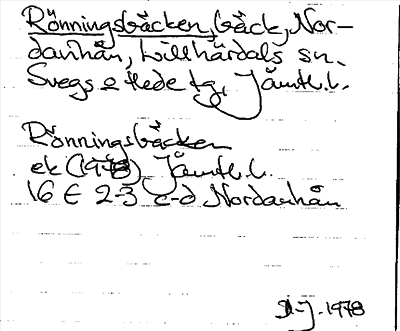 Rönningsbäcken, bäck, Nor-
danhån, Lillhärdals sn.
Svegs o Hede tg, Jämtl. l.
Rönningsbäcken
ek (1978) Jämtl. l.
16 E 2-3 c-d Nordanhån
1978